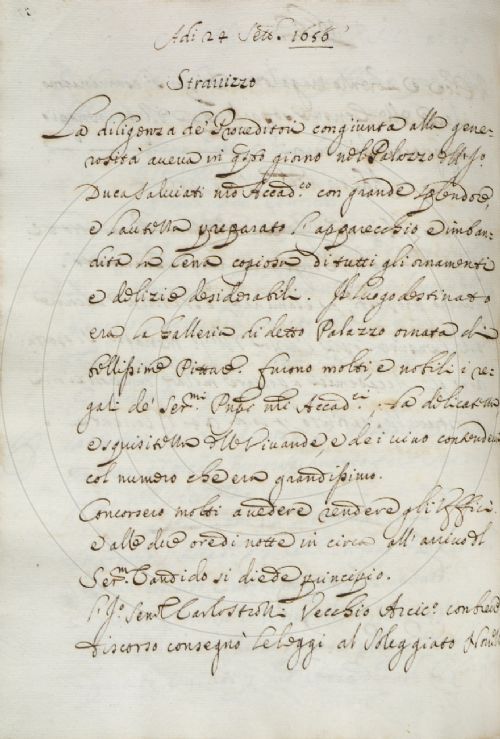 Adi 24 Sett.e 1656
Stravizzo
La diligenza de' Proveditori congiunta alla gene-
rosità aveva in q.sto giorno nel Palazzo dell' Ill.mo
Duca Salviati n.ro Accad.co con grande splendore,
e lautezza preparato l'apparecchio e imban-
dita la Cena copiosa di tutti gli ornamenti
e delizie desiderabili. Il luogo destinato
era la Galleria di detto Palazzo ornata di
bellissime Pitture. furono molti e nobili i re-
gali de' Ser.mi Pnpi nri Accad.ci, la delicatezza
e squisitezza delle Vivande, e dei vino contendeva
col numero che era grandissimo.
Concorsero molti a vedere rendere gli Uffici
e alle due ore di notte in circa all' arrivo del
Ser.mo Candido si diede principio.
Carlo Strozzi Vecchio Arcic.o con breve
discorso consegnò le leggi al Soleggiato